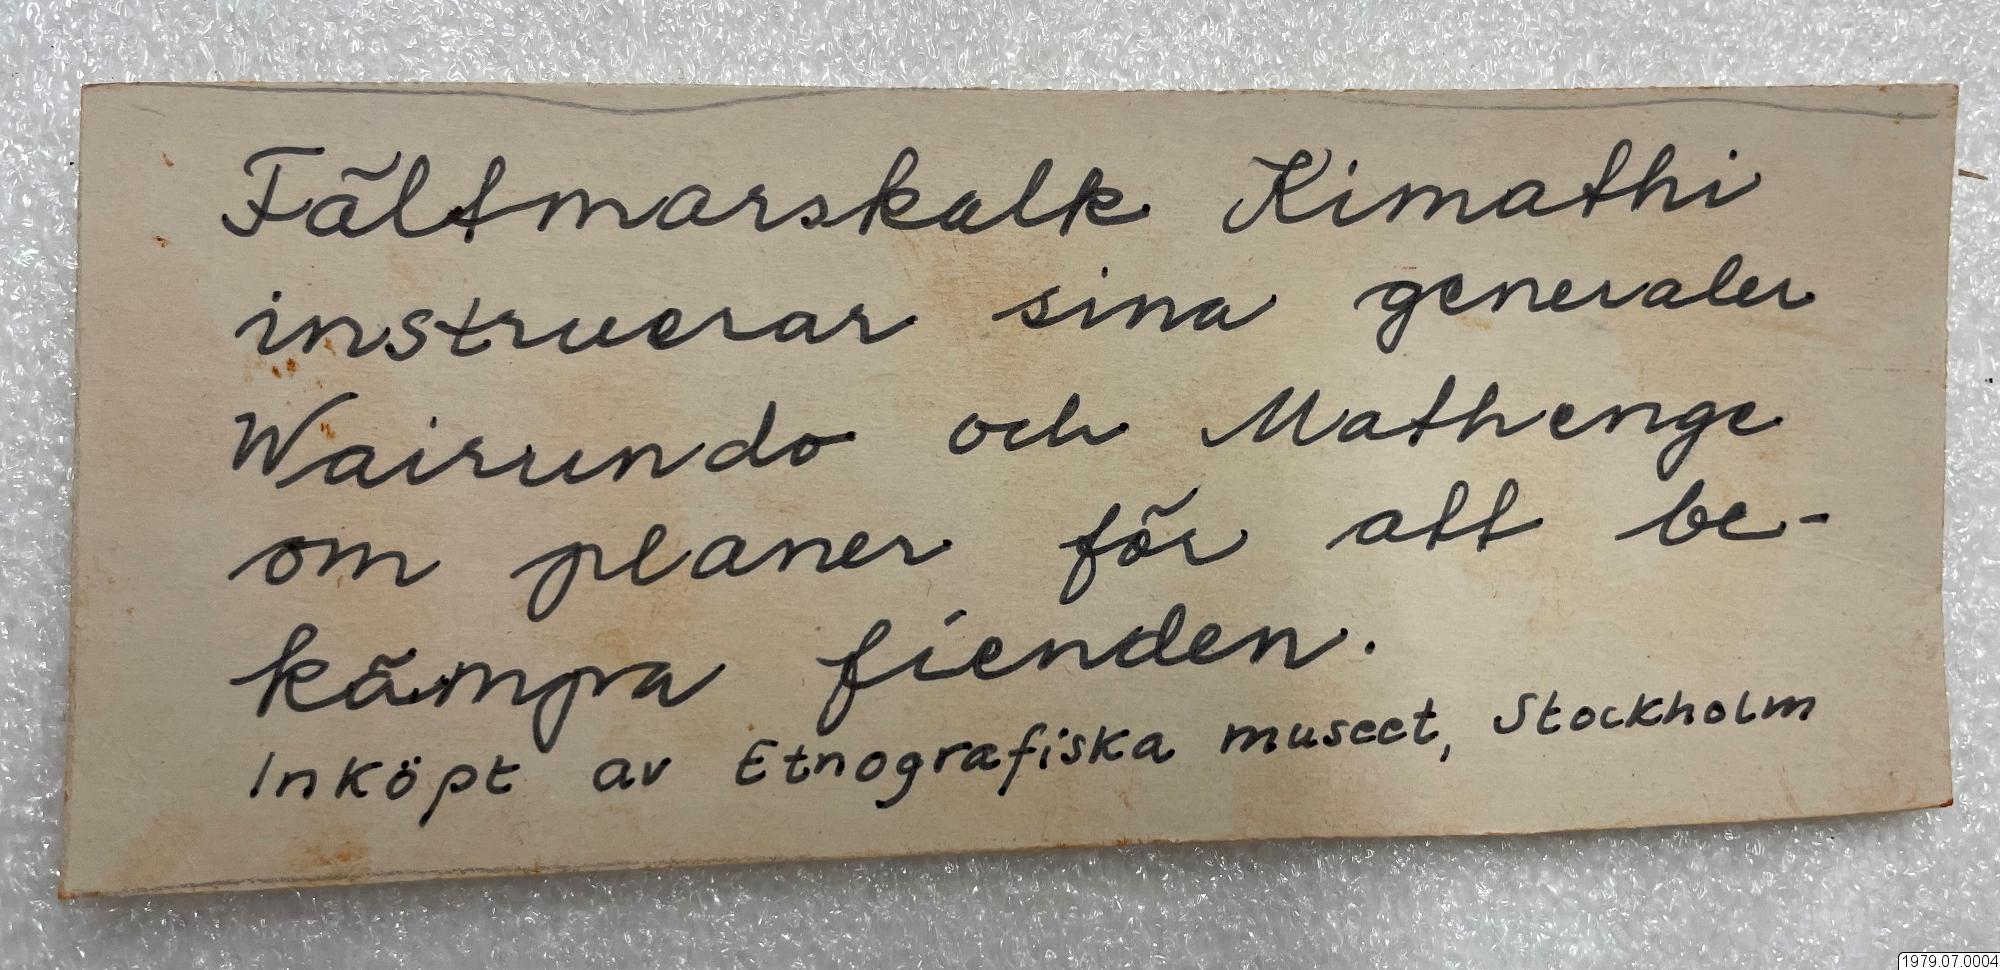 Fältmarskalk Kimathi
instruerar sina generaler
Wairundo och Mathenge
om planer för att be-
kämpa fienden.
Inköpt av Etnografiska museet, Stockholm
1979.07.0004